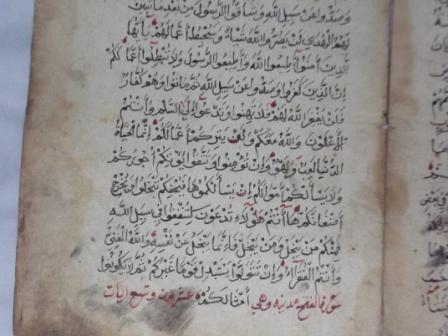 وصدوا عن سبيل الله وشاقوا الرسول من بعد ما تبين
لهم الهدى لن يضروا الله شيئا وسيحبط اعمالهم يا يها
الذين امنوا اطيعوا الله واطيعوا الرسول ولا تبطلوا اعمالكم
ان الذين كفروا وصدوا عن سبيل الله ثم ماتوا وهم كفار
فلن يغفر الله لهم فلا تهنوا وتدعوا الى السلم وانتم
الاعلون والله معكم ولن يتركم اعمالكم انما الحياة
الدنيا لعب ولهو وان تؤمنوا وتتقوا يؤتكم اجوركم
ولا يسألكم اموالكم ان يسألكموها فيحفكم تبخلوا ويخرج
اضغانكم ها انتم هؤلاء تدعون لتنفقوا في سبيل الله
فمنكم من يبخل ومن يبخل فانما يبخل عن نفسه والله الغني
وانتم الفقراء وان تتولوا يستبدل قوما غيركم ثم لا يكونوا
سورة الفتح مدنية وهي امثالكم عشرون وتسع ايات